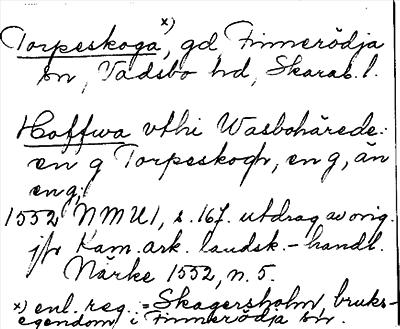 Torpeskoga x), gd, Finnerödja
sn, Vadsbo hd, Skarab. l.
Hoffwa vthi Wasbohärede:
en g Torpeskogh, en g, än
en g;
1552 NMU1, s. 167. utdrag av orig.
jfr Kam. ark. landsk.-handl.
Närke 1552, n. 5.
x) enl. reg. = Skagersholm, bruks-
egendom i Finnerödja sn.